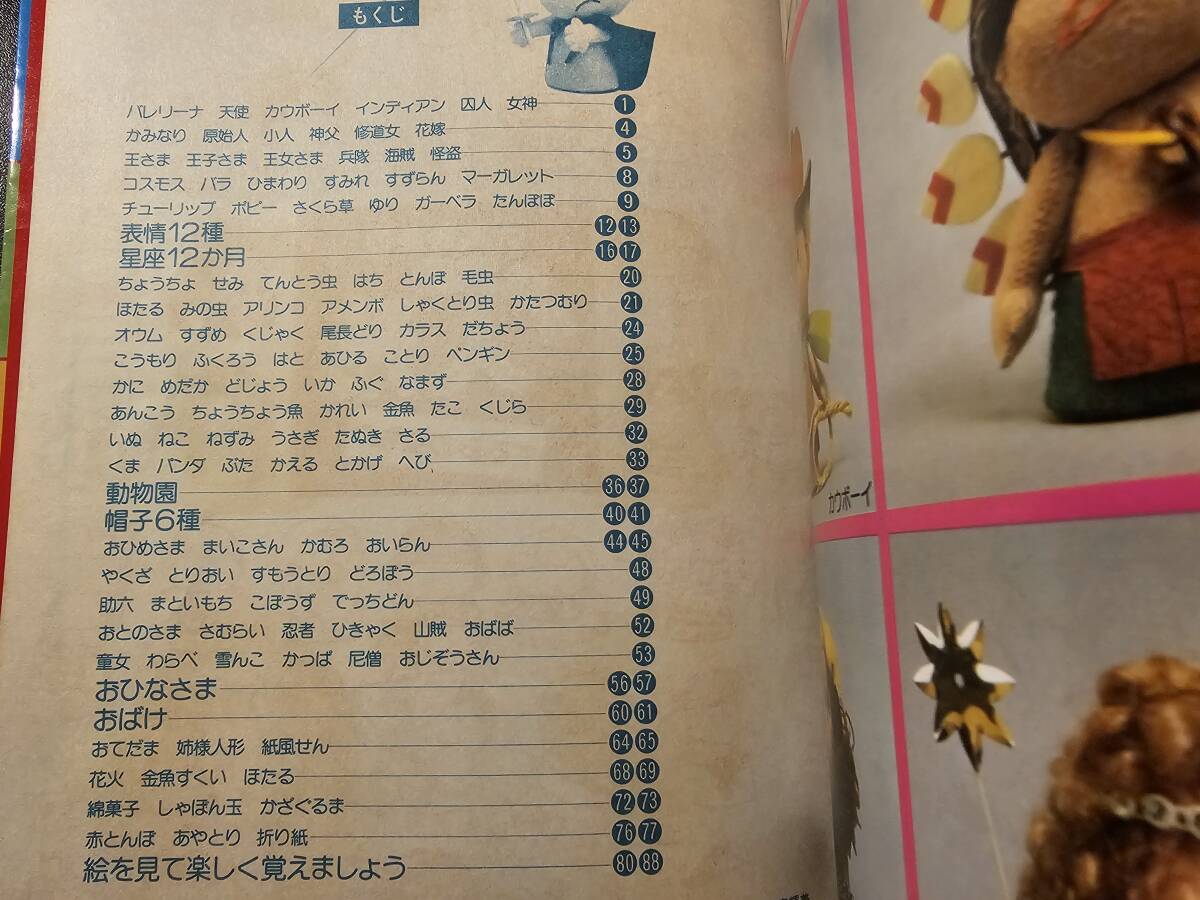 もくじ
バレリーナ 天使 カウボーイ インディアン 囚人 女神 1
かみなり 原始人 小人 神父 修道女 花嫁 4
王さま 王子さま 王女さま 兵隊 海賊 怪盗 5
コスモス バラ ひまわり すみれ すずらん マーガレット 8
チューリップ ポピー さくら草 ゆり ガーベラ たんぽぽ 9
表情12種 12 13
星座12か月 16 17
ちょうちょ せみ てんとう虫 はち とんぼ 毛虫 20
ほたる みの虫 アリンコ アメンボ しゃくとり虫 かたつむり 21
オウム すずめ くじゃく 尾長どり カラス だちょう 24
こうもり ふくろう はと あひる ことり ペンギン 25
かに めだか どじょう いか ふぐ なまず 28
あんこう ちょうちょう魚 かれい 金魚 たこ くじら 29
いぬ ねこ ねずみ うさぎ たぬき さる 32
くま パンダ ぶた かえる とかげ へび 33
動物園 36 37
帽子6種 40 41
おひめさま まいこさん かむろ おいらん 44 45
やくざ とりおい すもうとり どろぼう 48
助六 まといもち こぼうず でっちどん 49
おとのさま さむらい 忍者 ひきゃく 山賊 おばば 52
童女 わらべ 雪んこ かっぱ 尼僧 おじぞうさん 53
おひなさま 56 57
おばけ 60 61
おてだま 姉様人形 紙風せん 64 65
花火 金魚すくい ほたる 68 69
綿菓子 しゃぼん玉 かざぐるま 72 73
赤とんぼ あやとり 折り紙 76 77
絵を見て楽しく覚えましょう 80 88
カウボーイ